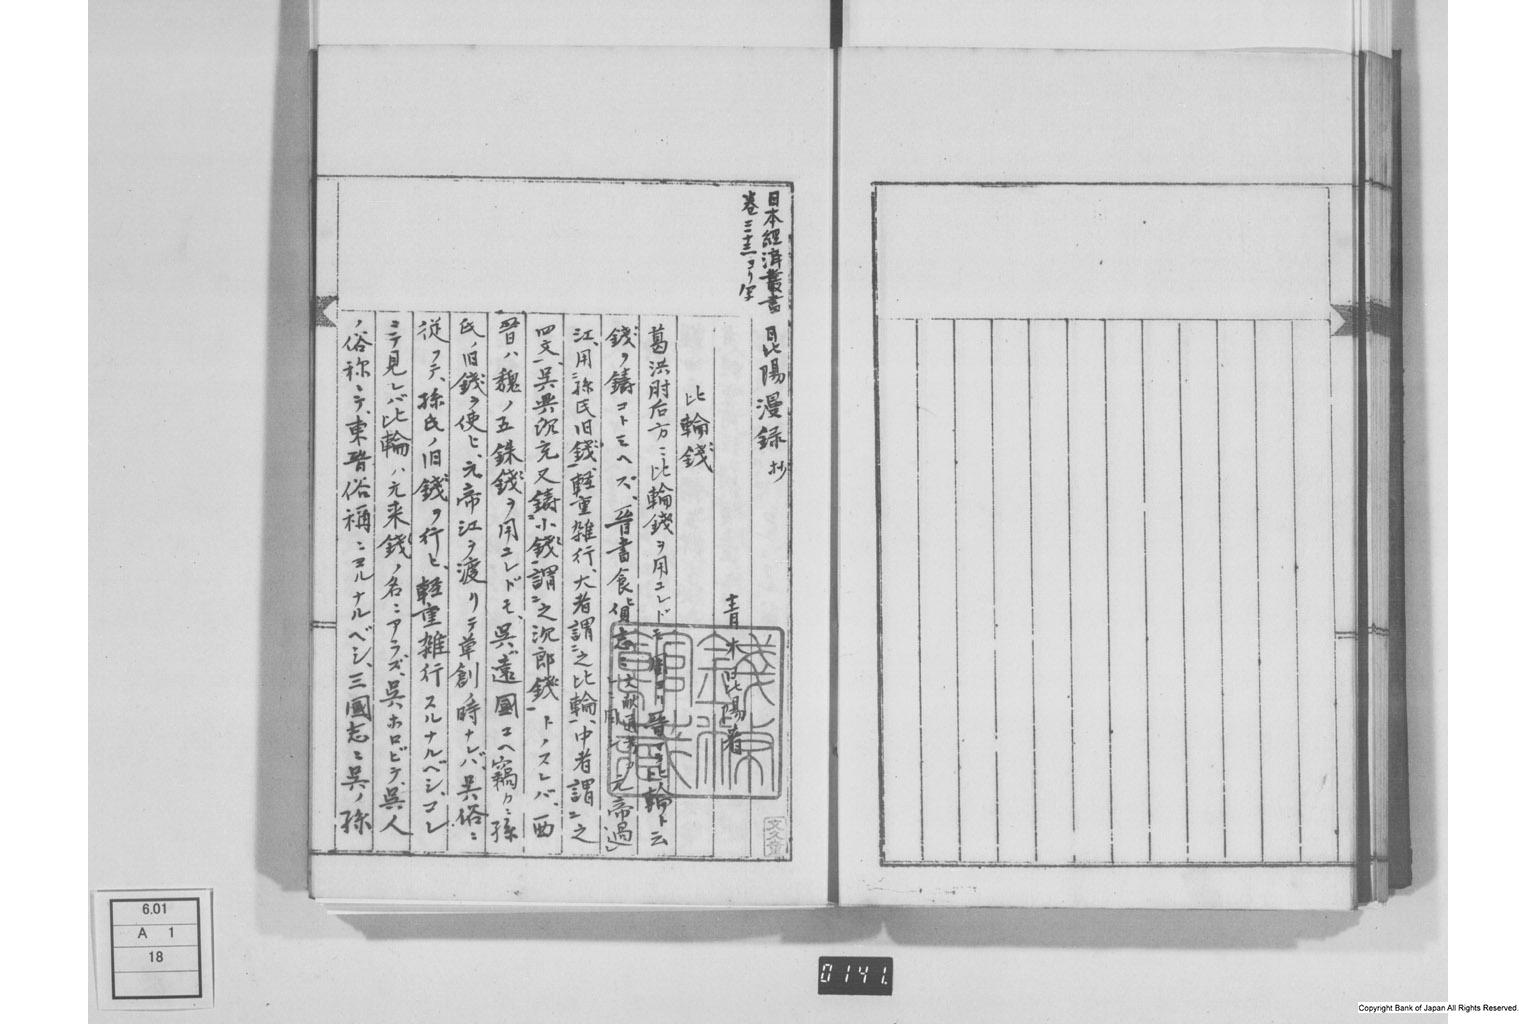 日本経済叢書
巻三十三ヨリ写
昆陽漫録 抄
青木昆陽著
比輪錢
葛洪肘后方ニ比輪錢ヲ用ユレドモ ヨリ晉マデ比輪ト云
錢ヲ鋳コトミヘズ、晉書食貨志ニ 文献通考 元帝過
江、用二孫氏旧錢一、軽重雑行、大者謂二之比輪一、中者謂二之
四文一、呉興沈充又鋳二小錢一、謂二之沈郎錢一トノスレバ、西
晉ハ魏ノ五銖錢ヲ用ユレドモ、呉ハ遠國ユヘ竊カニ孫
氏ノ旧錢ヲ使ヒ、元帝江ヲ渡リテ草創ノ時ナレバ、呉俗ニ
従フテ、孫氏ノ旧錢ヲ行ヒ、軽重雑行スルナルベシ、コレ
ニテ見レバ比輪ハ元来錢ノ名ニアラズ、呉ホロビテ、呉人
ノ俗称ニテ、東晉俗稱ニヨルナルベシ、三國志ニ呉ノ孫
6.01
A 1
18
0141.
Copyright Bank of Japan All Rights Reserved.